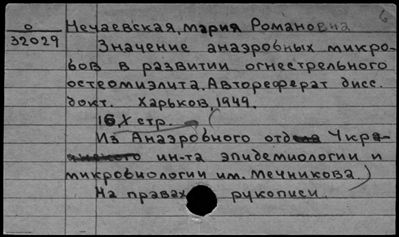 0
32029
Нечаевская, Мария Романовна
Значение анаэробных микро-
бов в развитии огнестрельного
остеомиэлита. Автореферат дисс.
докт. Харьков, 1949.
16 стр.
Из Анаэробного отдела Укра-
ин-та эпидемиологии и
микробиологии им. Мечникова.)
На правах рукописи.